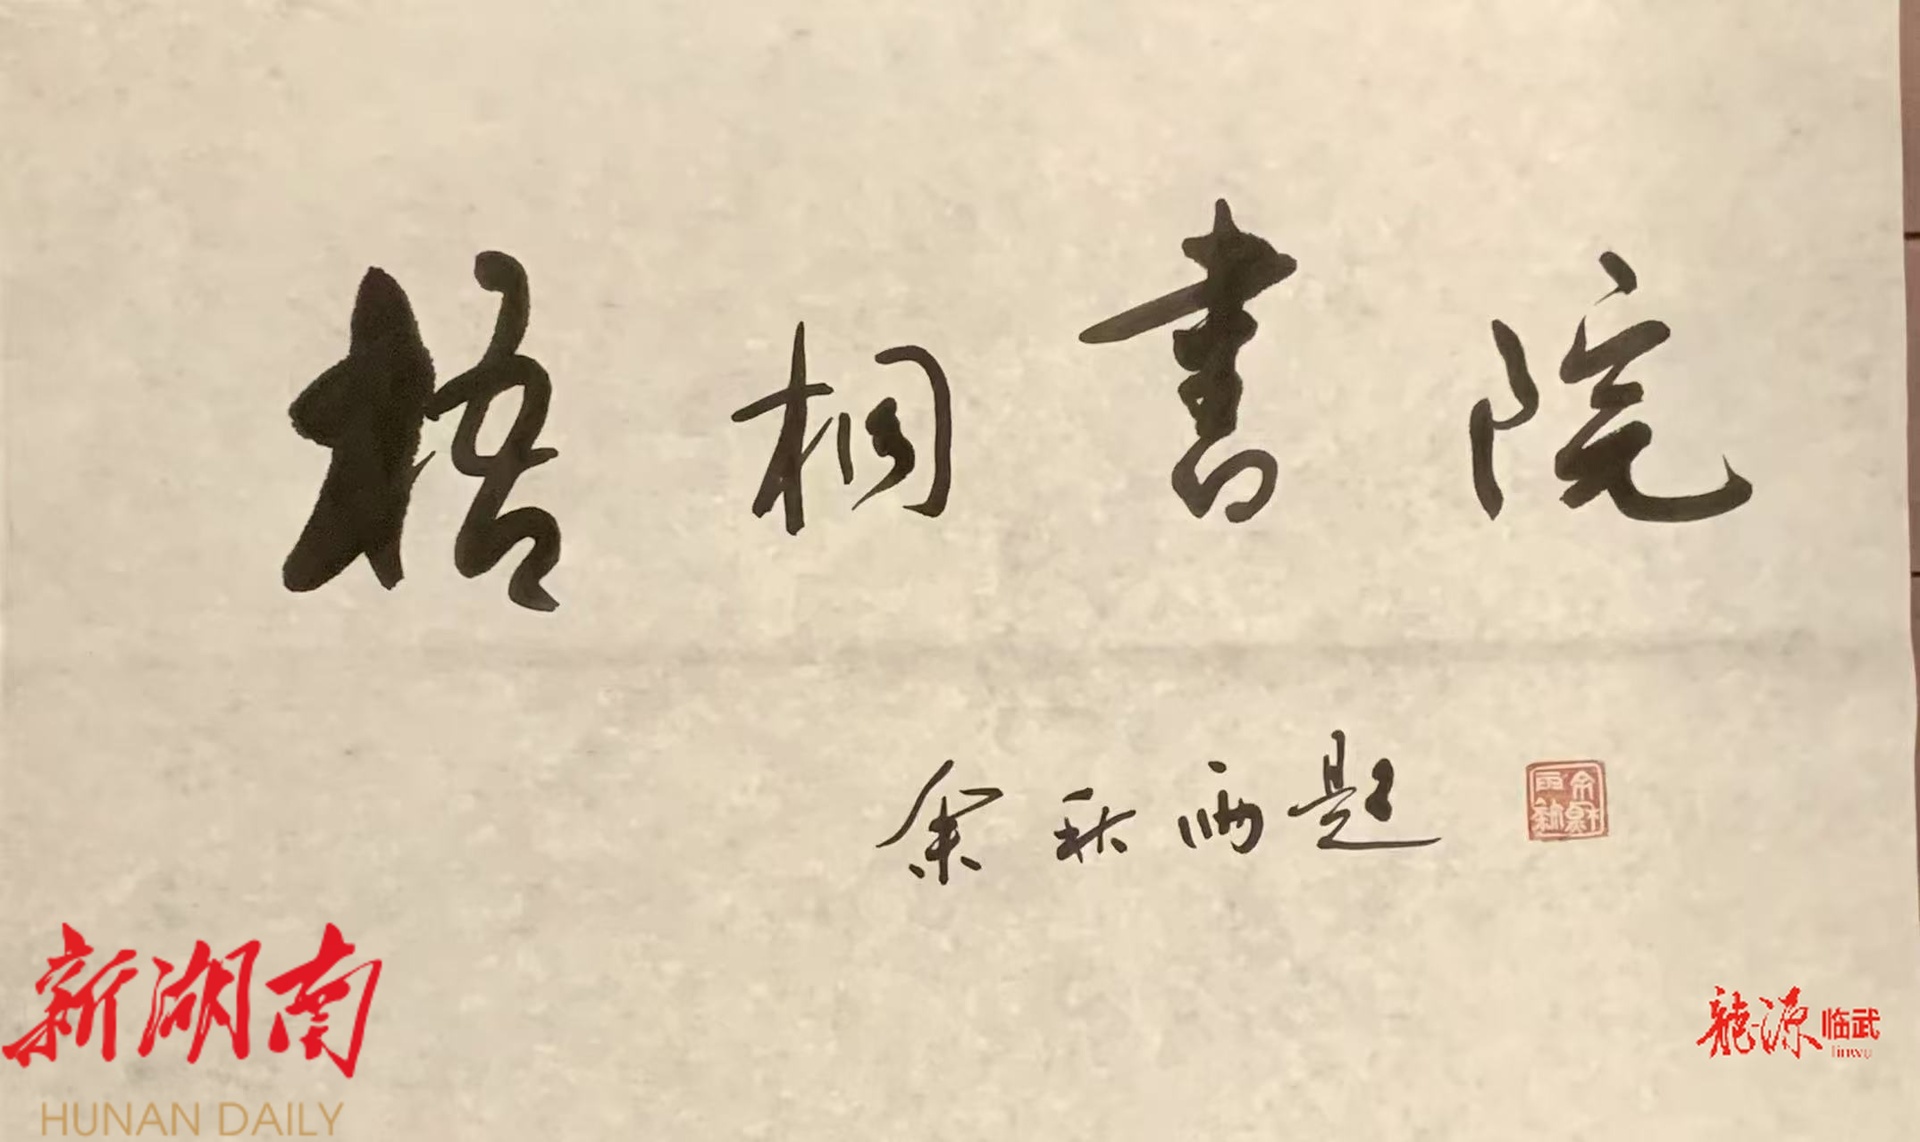 梧桐書院
余秋雨題
新湖南
HUNAN DAILY
龍源临武
linwu